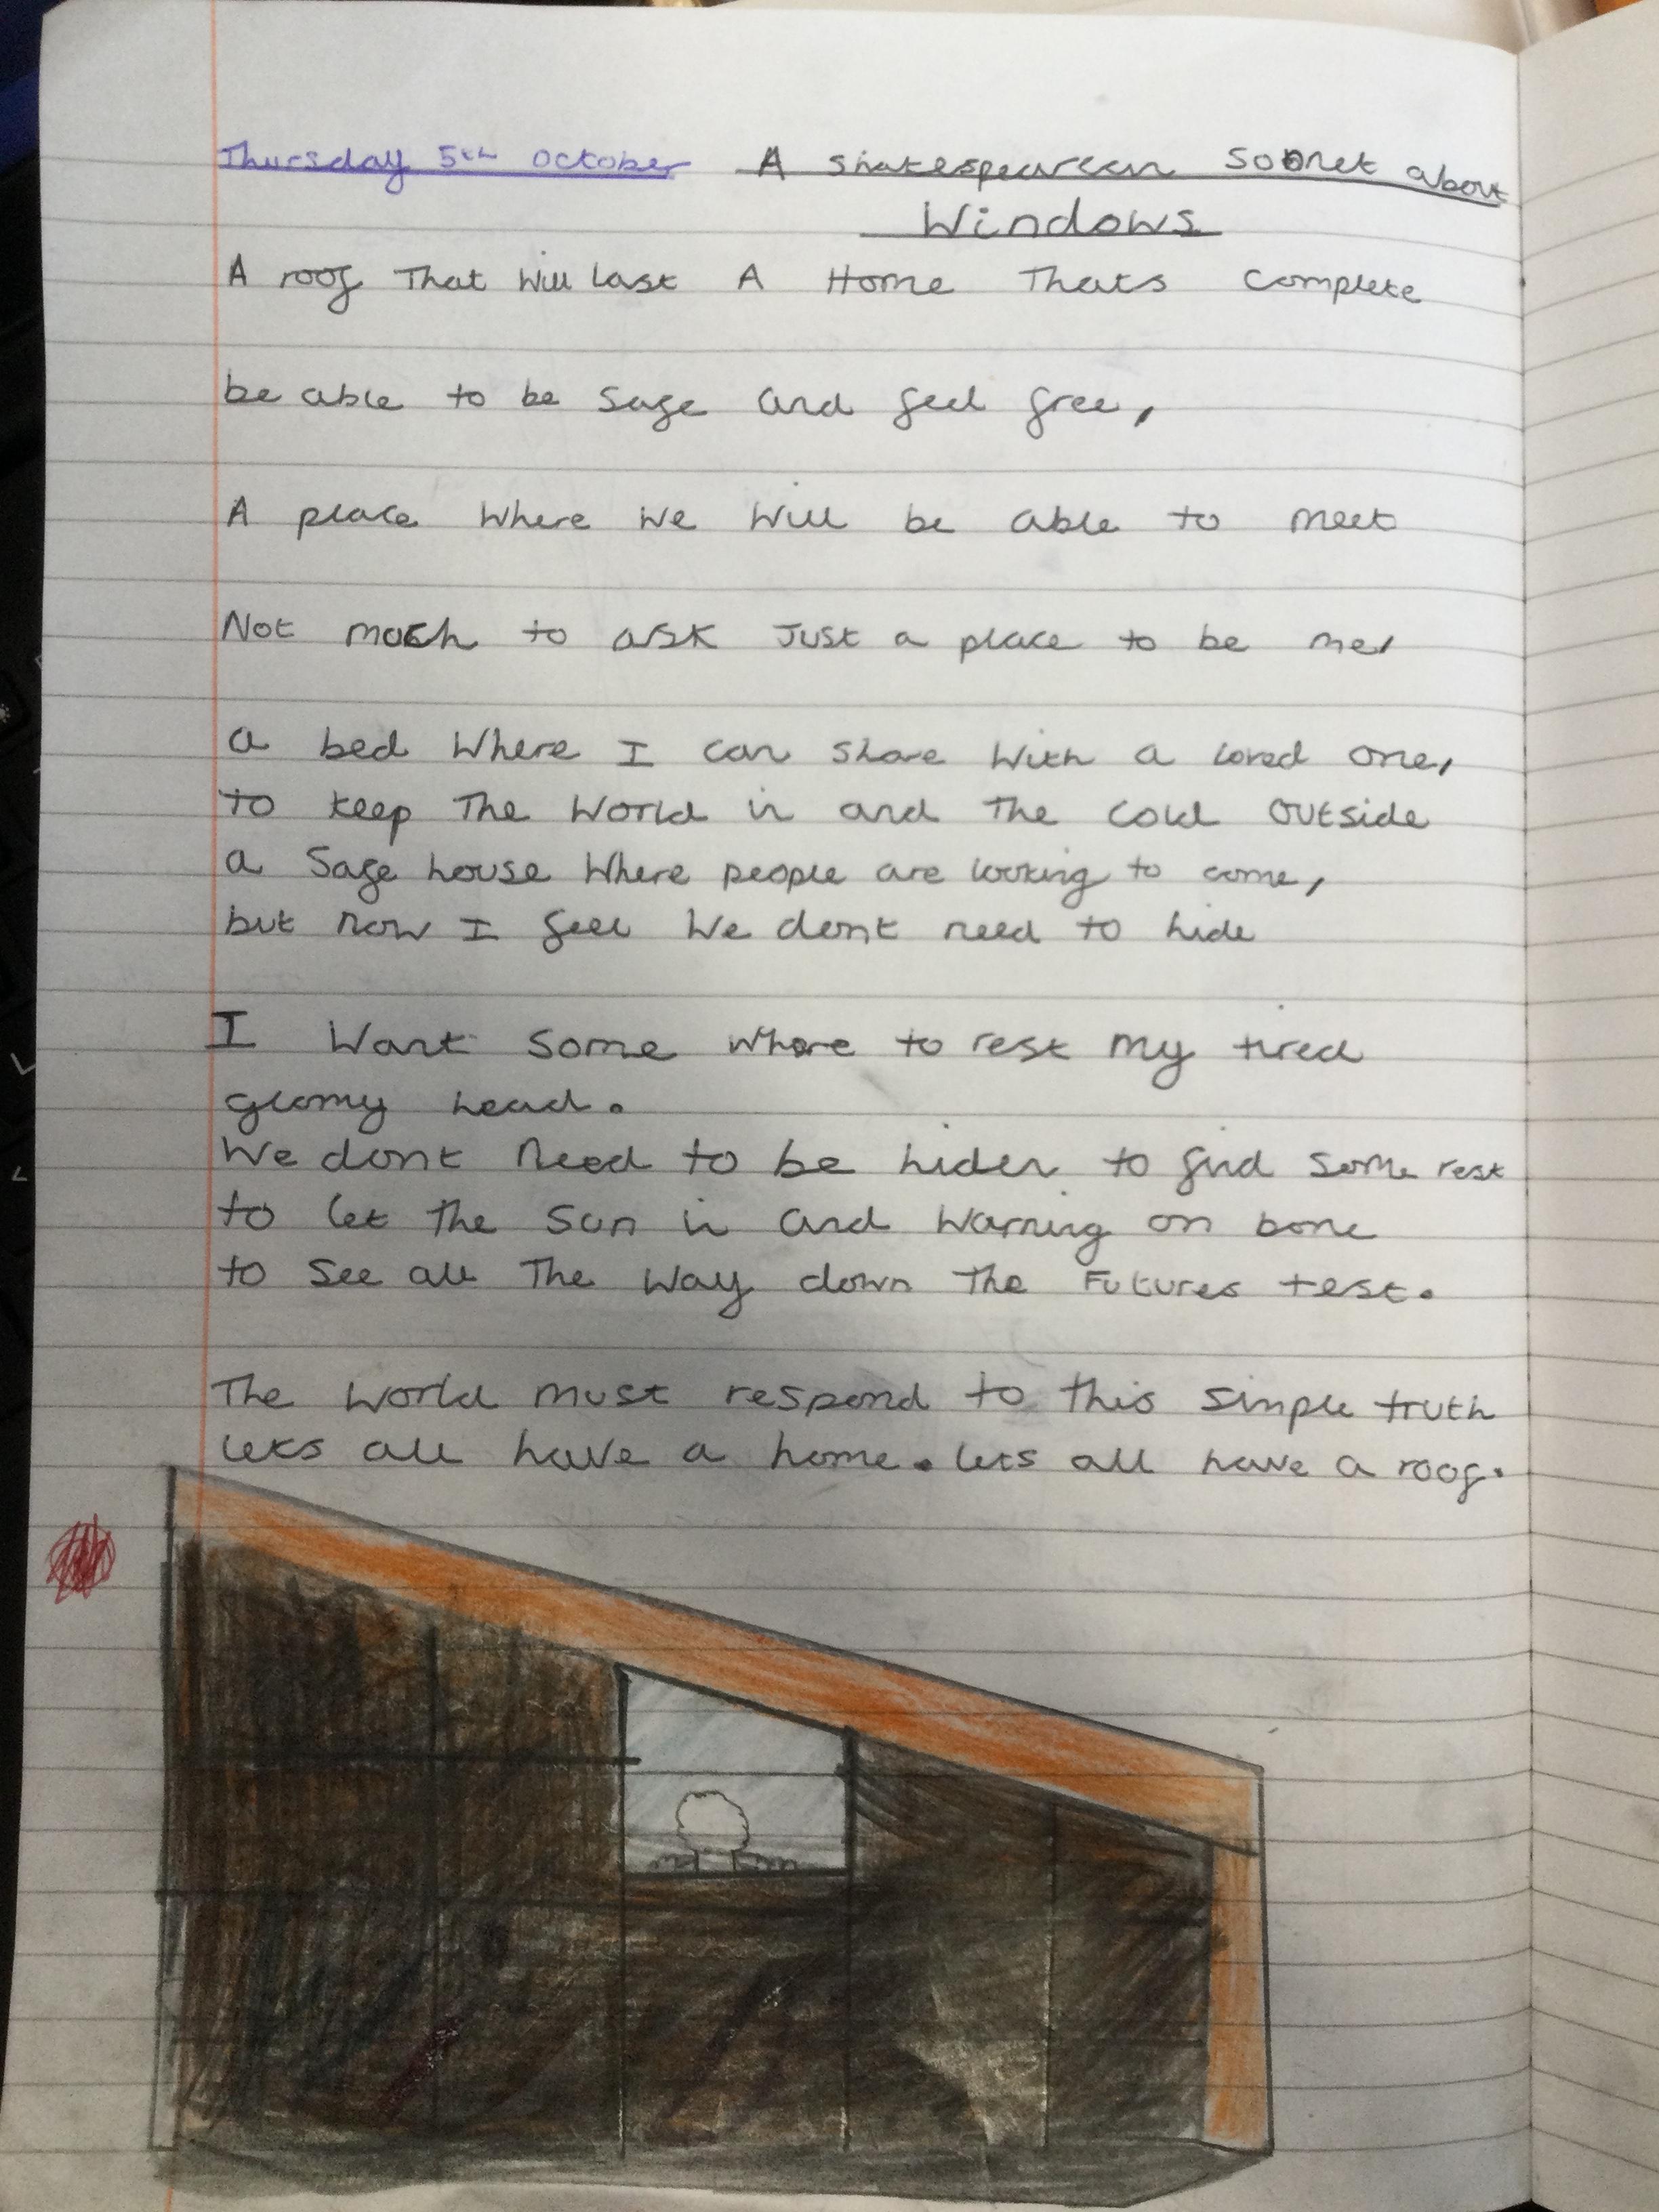 Thursday 5th October A shakespearean Sonnet about
Windows
A roof That will last A Home Thats Complete
be able to be safe and feel free,
A place where we will be able to meet
Not much to ask Just a place to be me,
a bed where I can share with a loved one,
to keep The World in and The cold outside
a Safe house Where people are looking to come,
but now I feel We dont need to hide
I Want some where to rest my tired
glomy head.
We dont Need to be hiden to find some rest
to let The Sun in and warning on bone
to see all The Way down The Futures test.
The World must respond to this simple truth
lets all have a home. lets all have a roof.